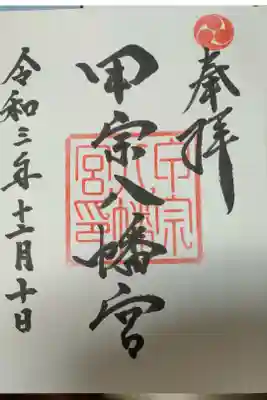 奉拝
甲宗八幡宮
甲宗八幡宮印
令和三年十二月十日